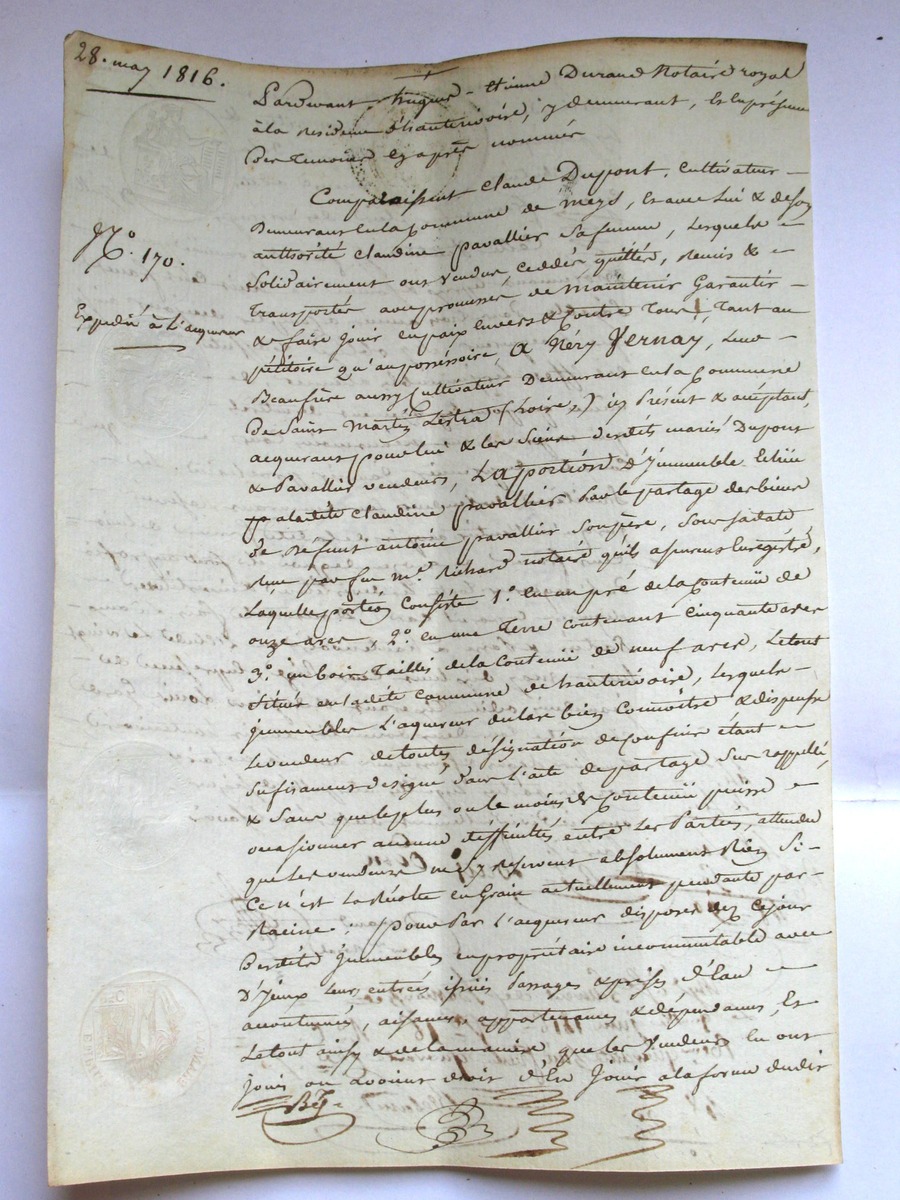 28. may 1816.
Pardevant Etienne Durand Notaire royal
à la residence d'hauterivoire, y demeurant, Et En présence
Des Temoins Cy après nommés
Comparaissent Claude Dupont, Cultivateur
Demeurant En la Commune de Meys, Et avec Lui & de son
authorité Claudine pavallier Sa femme, Lesquels
Solidairement ont Vendus, Ceddés quittés, remis &
Transportés avec promesse de Maintenir Garantir
& faire Jouir En paix Envers & Contre Tous, Tant au
pétitoire qu'au possessoire, A Néry Vernay, Leur
Beaufrère aussy Cultivateur Demeurant En la Commune
De Saint Martin Lestra (Loire,) icy Présent & acceptant,
acquerant pour lui & les Siens desdits mariés Dupont
& Pavallier vendeurs, La portion d'Jmmeuble Echüe
a ladite Claudine pavallier Par le partage des biens
de Défunt antoine pavallier Son père, Sous Sa date
Reçu par feu me. Richard notaire qu'ils assurent Enregistré,
Laquelle portion Consiste 1o. En un pré de la Contenüe de
onze ares, 2o. en une Terre contenant Cinquante ares
3o. un bois Taillis de la Contenüe de neuf ares, Le tout
Situé en ladite Commune de hauterivoire, Lesquels
jmmeubles L'aquereur déclare bien Connoître & dispense
Les vendeurs de toutes désignation de Confins étant
Sufisament designé dans L'acte de partage Sus rappellé,
& Sans que le plus ou le moins de Contenüe puisse
occasionner aucune difficultés entre Les Parties, attendu
que Les vendeurs ne s'y réservent absolument Rien Si
Ce n'est La Récolte en Grain actuellement pendante par
Racine; Pour Par L'aquereur disposer dez Ce jour
Desdits Jmmeubles en propriétaire incommutable avec
D'Jceux Leurs entrées issües Passages & prises d'Eau
acoutumés, aisances, appartenances & dépendances, Et
Le tout ainsy & de la maniere que les Vendeurs En ont
Joüis ou avoient droit d'En Joüir a la forme dudit
No. 170.
Expedié à L'aquereur